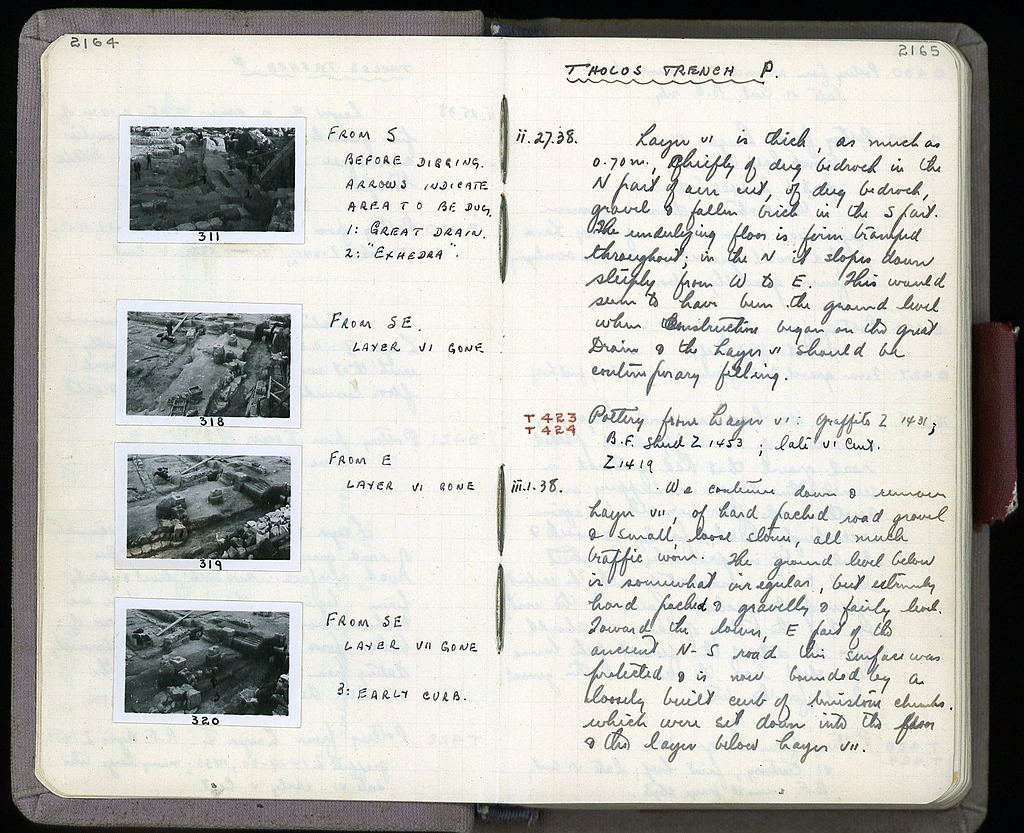 2164
FROM S
BEFORE DIGGING.
ARROWS INDICATE
AREA TO BE DUG.
1: GREAT DRAIN.
2: "EXHEDRA".
311
FROM SE.
LAYER VI GONE
318
FROM E
LAYER VI GONE
319
FROM SE
LAYER VII GONE
3: EARLY CURB.
320
2165
THOLOS TRENCH P.
ii.27.38. Layer VI is thick, as much as
0.70m, chiefly of dug bedrock in the
N part of our cut, of dug bedrock,
gravel & fallen brick in the S part.
The underlying floor is firm tramped
throughout; in the N it slopes down
steeply from W to E. This would
seem to have been the ground level
when construction began on the great
Drain & the Layer VI should be
contemporary filling.
T 423
T 424
Pottery from Layer VI: graffito Z 1431;
B.F. sherd Z 1453; late VI cent.
Z 1419
iii.1.38. We continue down & remove
Layer VII, of hard packed road gravel
& small loose stones, all much
traffic worn. The ground level below
is somewhat irregular, but extremely
hard packed & gravelly & fairly level.
Toward the lower, E part of the
ancient N-S road this surface was
protected & is now bounded by a
loosely built curb of limestone chunks.
which were set down into the floor
& the layer below Layer VII.